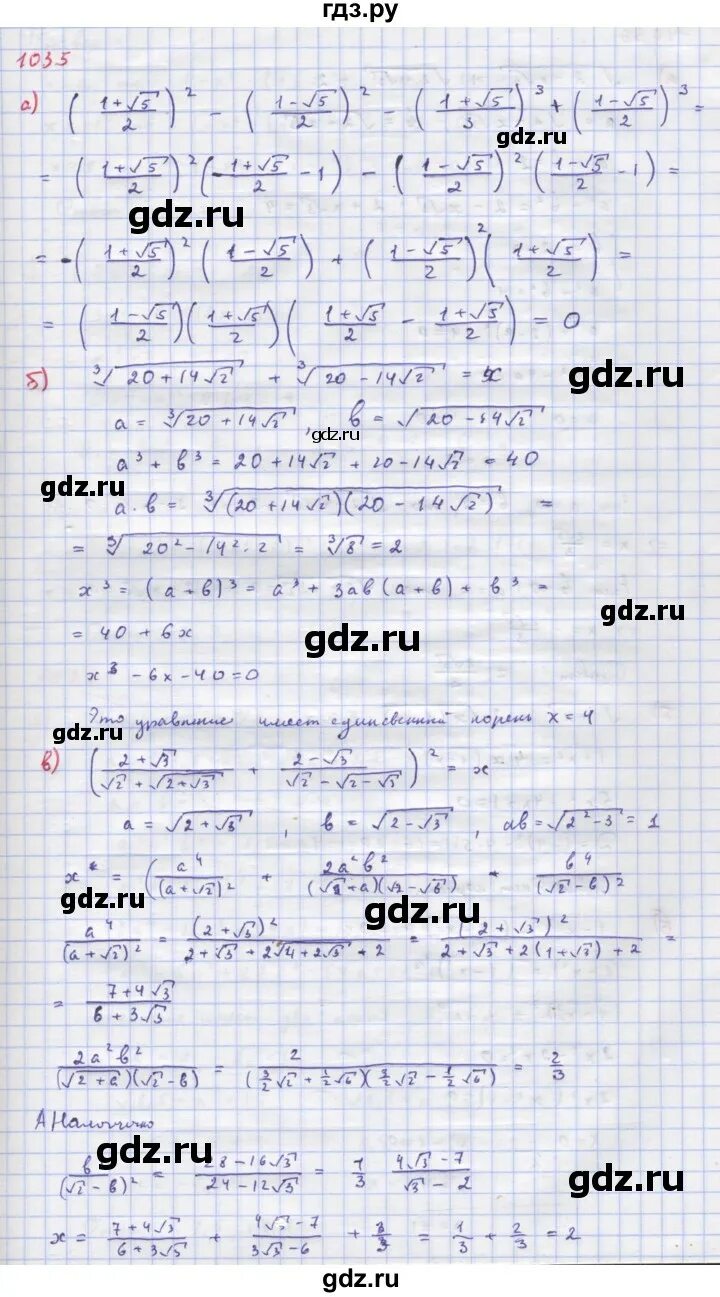 гдз.ру
1035
а) ((1+√5)/2)² − ((1−√5)/2)² − ((1+√5)/3)³ + ((1−√5)/2)³ =
gdz.ru
= ((1+√5)/2)² (−(1+√5)/2 − 1) − ((1−√5)/2)² ((1−√5)/2 − 1) =
gdz.ru
gdz.ru
= −((1+√5)/2)² ((1−√5)/2) + ((1−√5)/2)² ((1+√5)/2) =
= ((1−√5)/2)((1+√5)/2)((1+√5)/2 − (1+√5)/2) = 0
б) ∛(20+14√2) + ∛(20−14√2) = x
gdz.ru
a = ∛(20+14√2), b = √(20−14√2)
gdz.ru
a³ + b³ = 20+14√2 + 20−14√2 = 40
gdz.ru
a·b = ∛((20+14√2)(20−14√2)) =
gdz.ru
= ∛(20²−14²·2) = ∛8 = 2
x³ = (a+b)³ = a³ + 3ab(a+b) + b³ =
gdz.ru
= 40 + 6x
gdz.ru
x³ − 6x − 40 = 0
Это уравнение имеет единсвенний корень x = 4
gdz.ru
в) ((2+√3)/(√2+√(2+√3)) + (2−√3)/(√2−√(2−√3)))² = x
a = √(2+√3), b = √(2−√3), ab = √(2²−3) = 1
gdz.ru
x = (a⁴/(a+√2)² + 2a²b²/((√2+a)(√2−b)) + b⁴/(√2−b)²
gdz.ru
a⁴/(a+√2)² = (2+√3)²/(2+√3+2√(4+2√3)+2) = (2+√3)²/(2+√3+2(1+√3)+2) =
gdz.ru
= (7+4√3)/(6+3√3)
gdz.ru
2a²b²/((√2+a)(√2−b)) = 2/((3/2√2+1/2√6)(3/2√2−1/2√6)) = 2/3
Аналогично
gdz.ru
b/(√2−b)² = (28−16√3)/(24−12√3) = 1/3 (4√3−7)/(√3−2)
gdz.ru
x = (7+4√3)/(6+3√3) + (4√3−7)/(3√3−6) + 2/3 = 1/3 + 2/3 = 2
gdz.ru
gdz.ru